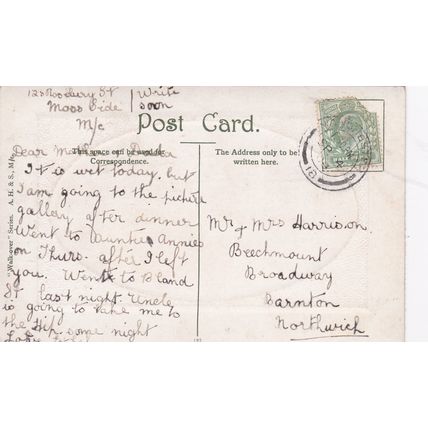 123 Rosebery St
Moss Side
M/c
Write
soon
Post Card.
This space can be used for
Correspondence.
The Address only to be
written here.
"Walk-over" Series. A. H. & S., M/c.
Dear Mother
It is wet today, but
I am going to the picture
gallery after dinner
Went to Auntie Annies
on Thurs. after I left
you. Went to Bland
St last night. Uncle
is going to take me to
the Hip. some night
Mr & Mrs Harrison.
Beechmount
Broadway
Barnton
Northwich